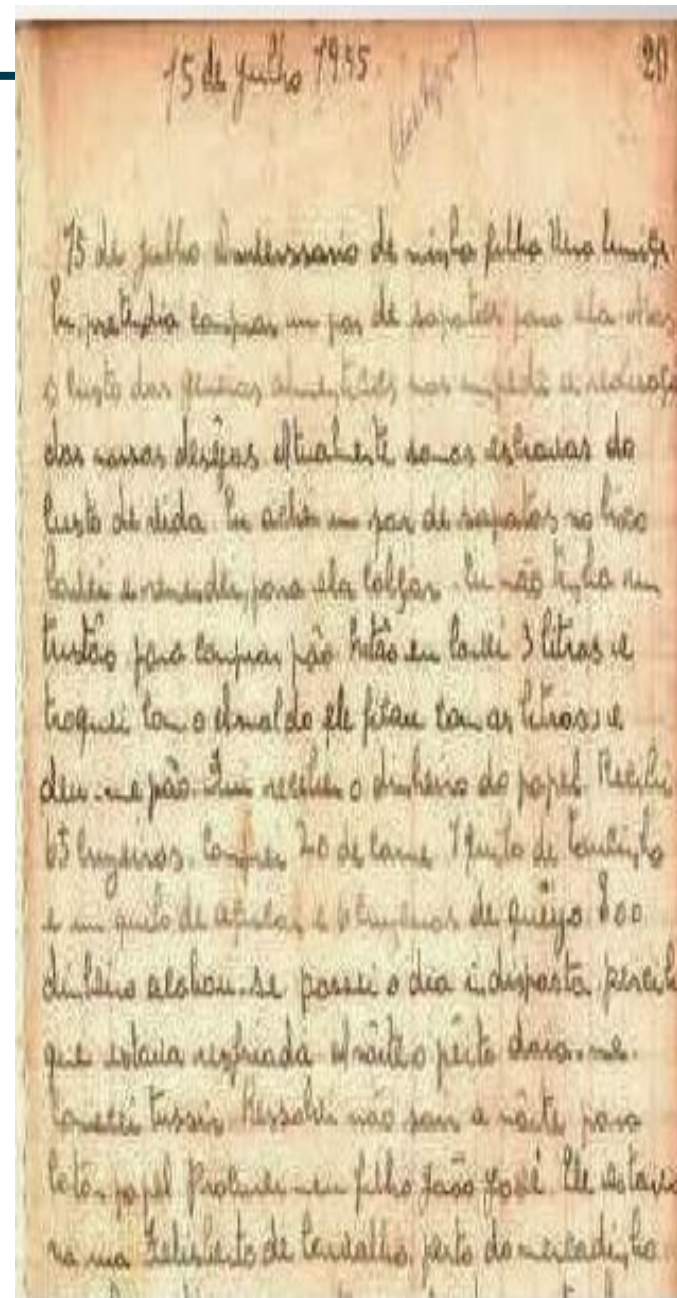 15 de julho 1955 20
15 de julho Aniverssario de minha filha Vera Eunice.
Eu pretendia comprar um par de sapatos para ela. Mas
o custo dos generos alimenticios nos impede a realisação
dos nossos desêjos. Atualmente somos escravas do
custo de vida. Eu achei um par de sapatos no lixo
lavei e remendei para ela calçar. Eu não tinha um
tustão para comprar pão. Então eu lavei 3 litros e
troquei com o Arnaldo ele ficou com os litros e
deu-me pão. Fui receber o dinheiro do papel. Recebi
65 cruzeiros. Comprei 20 de carne. 1 quilo de toucinho
e um quilo de açucar e 6 cruzeiros de queijo. E o
dinheiro acabou-se. passei o dia indisposta percibi
que estava resfriada. A noite o peito doia-me.
Comecei tussir. Ressolvi não sair a noite para
catar papel. Procurei meu filho João José. Ele estava
na rua Felisberto de Carvalho, perto do mercadinho.